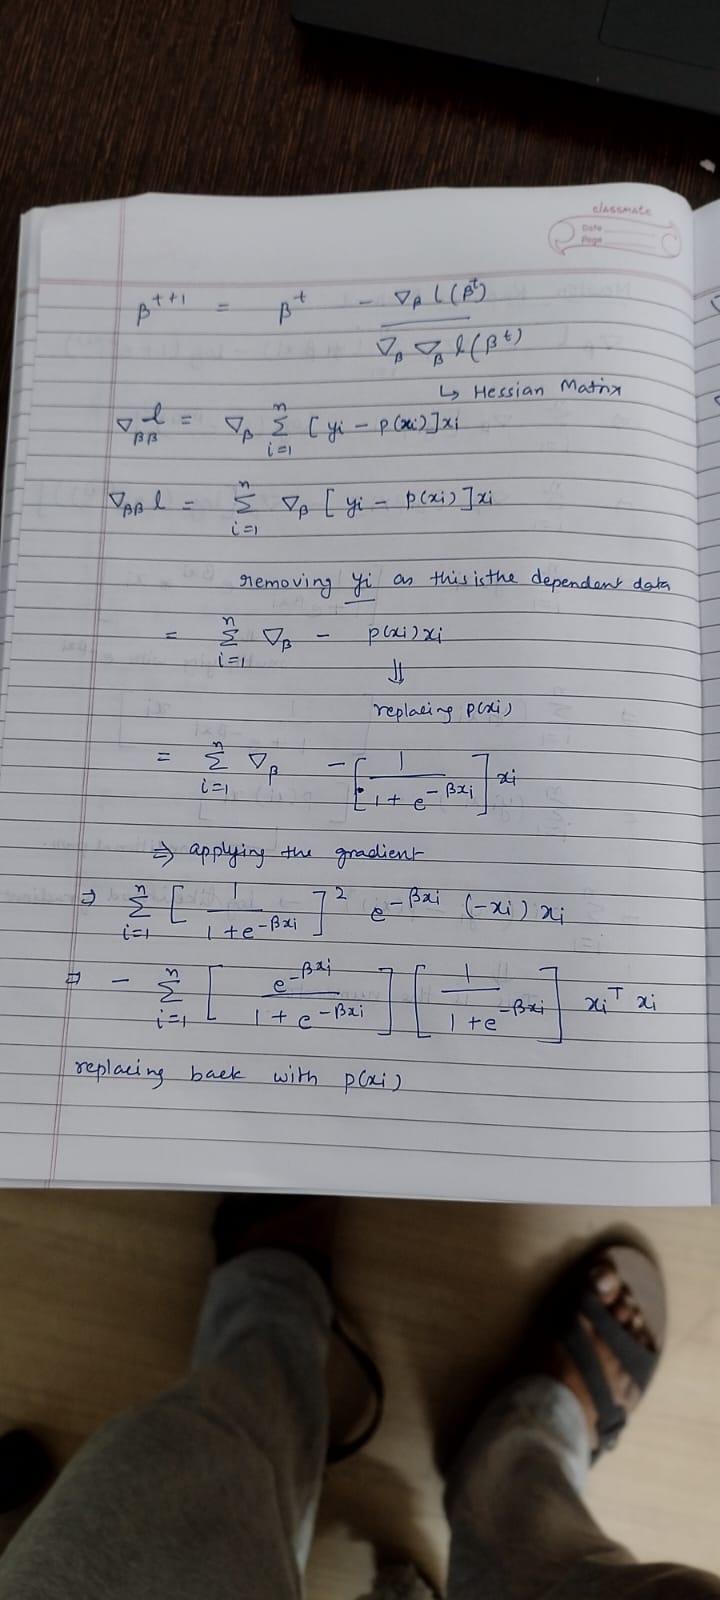 classmate
Date
Page
β^{t+1} = β^t - ∇_β l(β^t) / ∇_β ∇_β l(β^t)
↳ Hessian Matrix
∇_{ββ} l = ∇_β Σ_{i=1}^{n} [yi - p(xi)]xi
∇_{ββ} l = Σ_{i=1}^{n} ∇_β [yi - p(xi)]xi
removing yi as this is the dependent data
= Σ_{i=1}^{n} ∇_β - p(xi)xi
⇓
replacing p(xi)
= Σ_{i=1}^{n} ∇_β - [1 / (1 + e^{-βxi})] xi
⇒ applying the gradient
⇒ Σ_{i=1}^{n} [1 / (1 + e^{-βxi})]^2 e^{-βxi} (-xi) xi
⇒ - Σ_{i=1}^{n} [e^{-βxi} / (1 + e^{-βxi})] [1 / (1 + e^{-βxi})] xi^T xi
replacing back with p(xi)